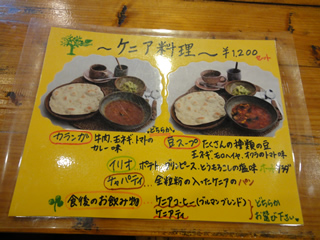 ～ケニア料理～ ¥1,200 セット
どちらか
カランガ 牛肉、玉ネギ、トマトのカレー味
豆スープ たくさんの種類の豆
玉ネギ、モロヘイヤ、オクラのトマト味
イリオ ポテト、グリンピース、とうもろこしの塩味
チャパティ 全粒粉の入ったケニアのパン
食後のお飲み物 ケニアコーヒー(ブルマンブレンド)
ケニアティ
どちらか
お選び下さい